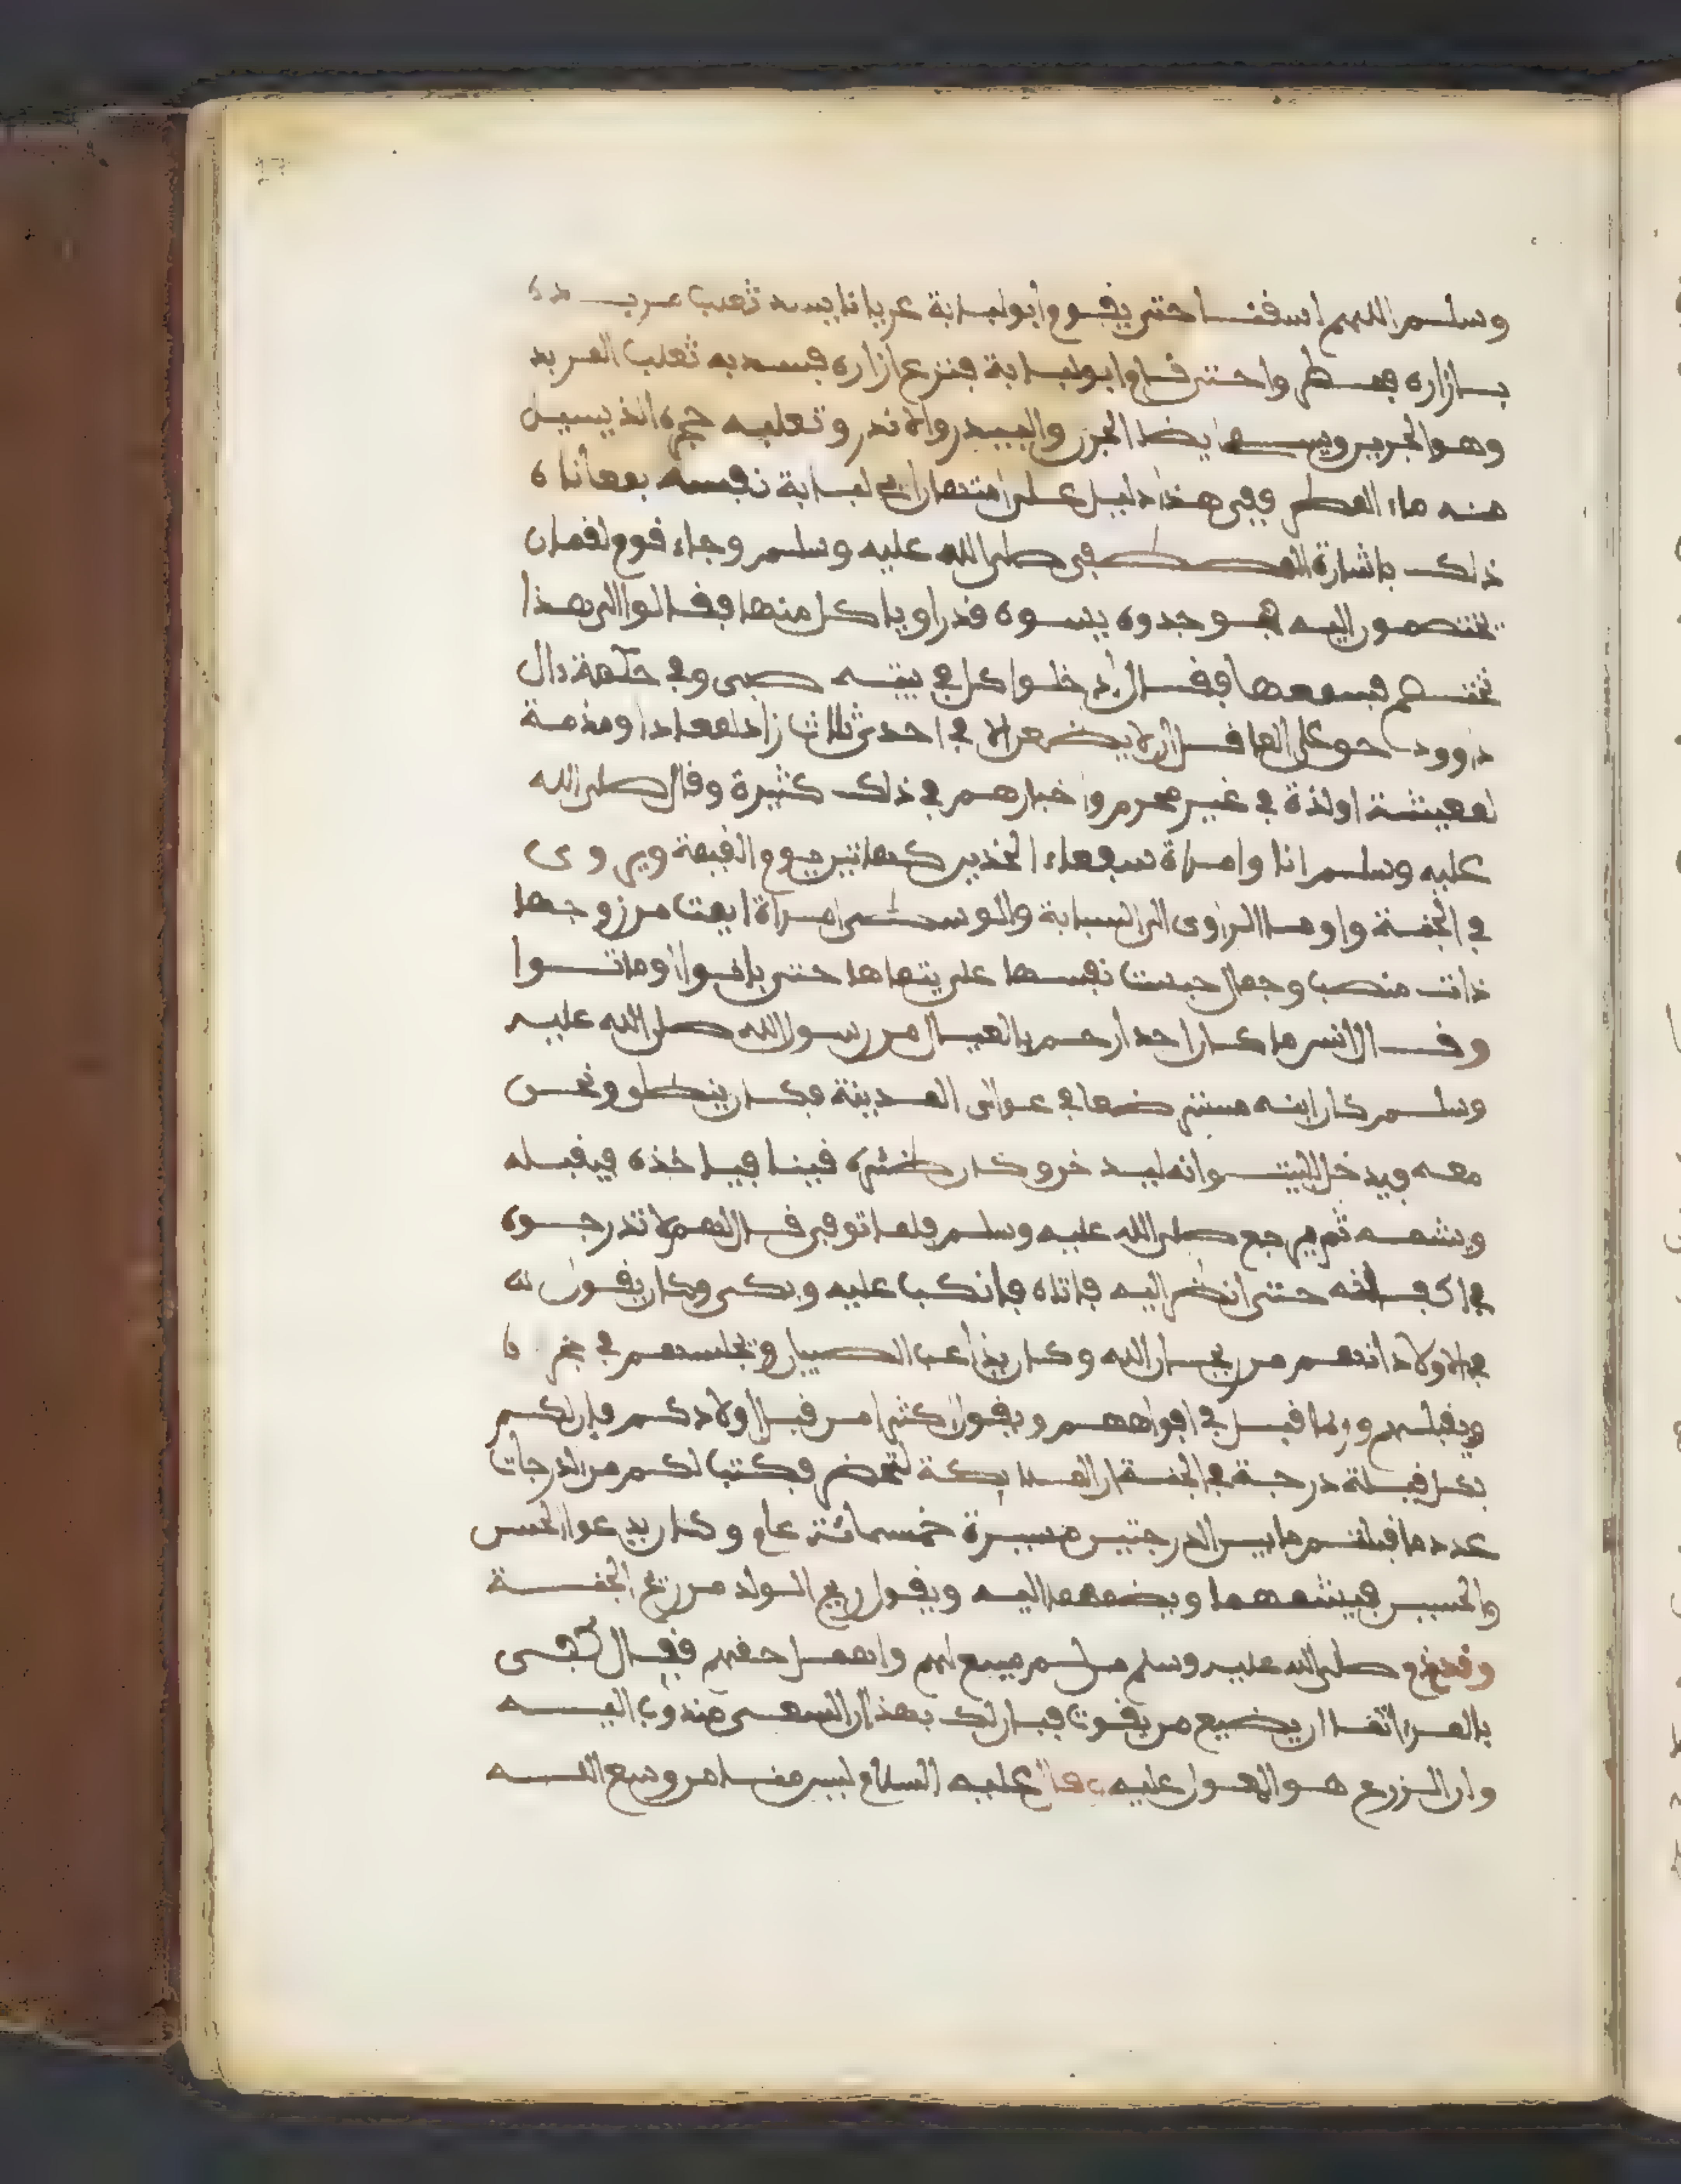 وسلم اللهم اسقنا حتى يقوم ابو لبابة عريانا يسد ثعلب مربده
بازاره فمطروا حتى قام ابو لبابة فنزع ازاره فسد به ثعلب المربد
وهو الجرين ويسمى ايضا الجرن والبيدر والاندر وثعلبه جحره الذي يسيل
منه ماء المطر ففي هذا دليل على امتهان ابي لبابة نفسه بمعاناة
ذلك باشارة المصطفى صلى الله عليه وسلم وجاء قوم لقمان
يختصمون اليه فوجدوه يسوه قدرا وياكل منها فقالوا الى هذا
نختصم فسمعها فقال ادخلوا كل في بيته صبي وفي حكمة دال
داوود حق على العاقل ان لا يضعن الا في احدى ثلاث زاد لمعاد او مذمة
لمعيشة او لذة في غير محرم واخبارهم في ذلك كثيرة وقال صلى الله
عليه وسلم انا وامراة سفعاء الخدين كهاتين يوم القيمة ويروى
في الجنة واومأ الراوي الى السبابة والوسطى امراة ايمت من زوجها
ذات منصب وجمال حبست نفسها على يتاماها حتى بانوا او ماتوا
وقال انس ما كان احد ارحم بالعيال من رسول الله صلى الله عليه
وسلم كان ابنه مسترضعا في عوالى المدينة فكان ينطلق ونحن
معه ويدخل البيت وانه ليدخن وكان ظئره قينا فياخذه فيقبله
ويشمه ثم يرجع صلى الله عليه وسلم فلما توفي قال لهم لا تدرجوه
في اكفانه حتى انظر اليه فاتاه فانكب عليه وبكى وكان يقول له
في الاولاد انهم من ريحان الله وكان يلاعب الصبيان ويجلسهم في
ويقبلهم وربما قبل في افواههم ويقول اكثروا من قبل اولادكم فان لكم
بكل قبلة درجة في الجنة ان الملايكة لتحضر فكتب لكم من الدرجات
عدد ما قبلتم ما بين الدرجتين مسيرة خمسمائة عام وكان يدعو الحسن
والحسين فيشمهما ويضمهما اليه ويقول ريح الولد من ريح الجنة
وقد ذم صلى الله عليه وسلم من لم يسع لهم واهمل حقهم فقال كفى
بالمرء اثما ان يضيع من يقوت فبان لك بهذا ان السعى مندوب اليه
وان الزرع هو المعول عليه قال عليه السلام ليس منا من وسع الله